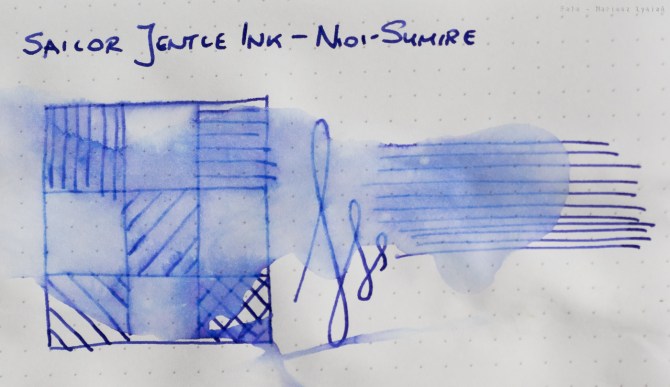 SAILOR JENTLE INK - NIOI-SUMIRE